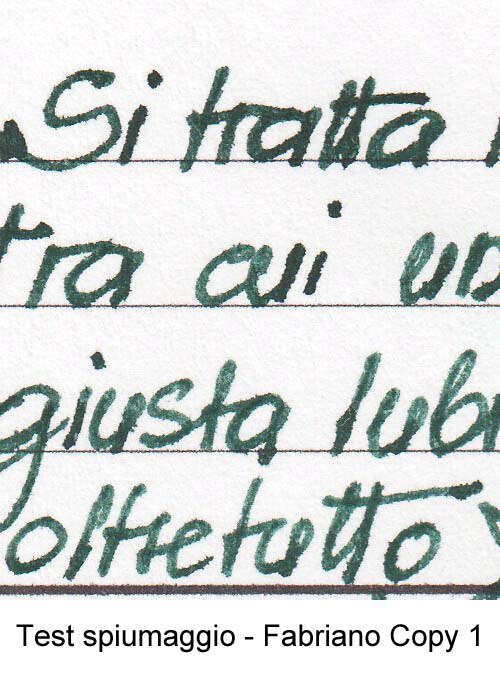 Si tratta
tra cui un
giusta lub
oltretutto
Test spiumaggio - Fabriano Copy 1